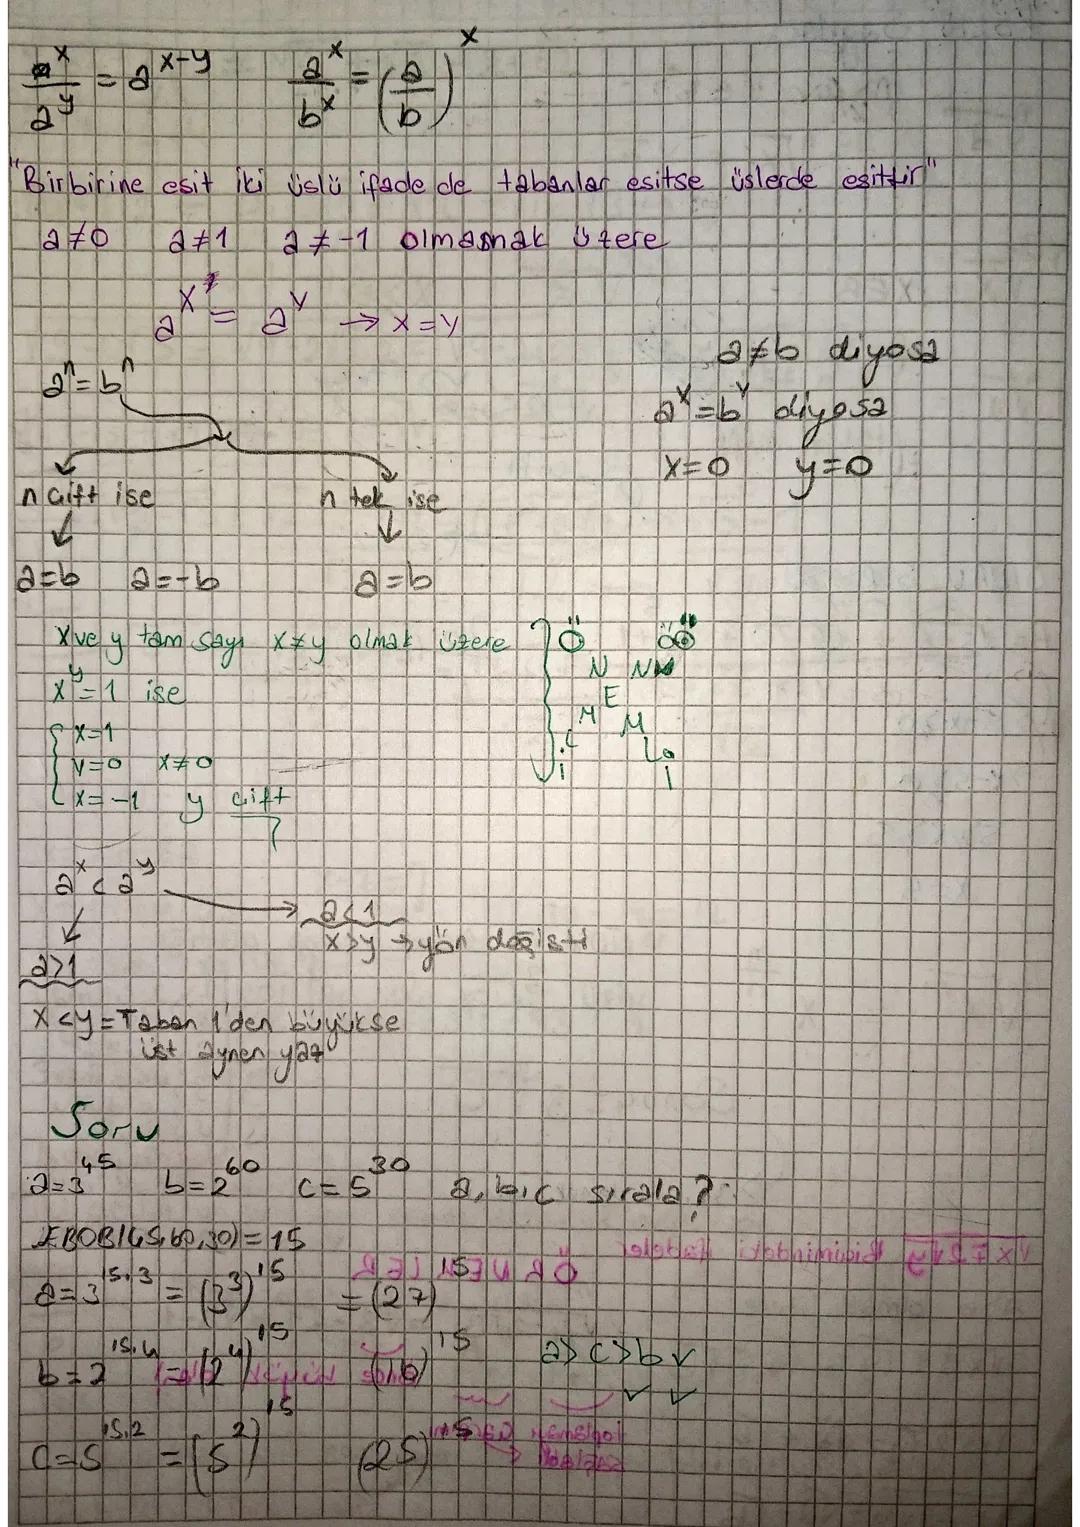 a^x/a^y = a^(x-y)    a^x/b^x = (a/b)^x
"Birbirine eşit iki üslü ifade de tabanlar eşitse üslerde eşittir"
a≠0    a≠1    a≠-1 olmamak üzere
a^x = a^y → x=y
a≠b diyosa
a^x=b^y diyosa
x=0    y=0
a^n=b^n
n çift ise    n tek ise
a=b    a=-b    a=b
x ve y tam sayı x≠y olmak üzere
x^y=1 ise
x=1
y=0    x≠0
x=-1    y çift
ÖNEMLİ
ÖNEMLİ
a^x < a^y
a<1
x>y → yön değişti
a>1
x<y = Taban 1'den büyükse
üst aynen yaz
Soru
a=3^45    b=2^60    c=5^30    a, b, c sırala?
EBOB(45,60,30)=15
a=3^(15.3) = (3^3)^15 = (27)^15
b=2^(15.4) = (2^4)^15    (16)^15    a>c>b ✓
c=5^(15.2) = (5^2)^15    (25)^15